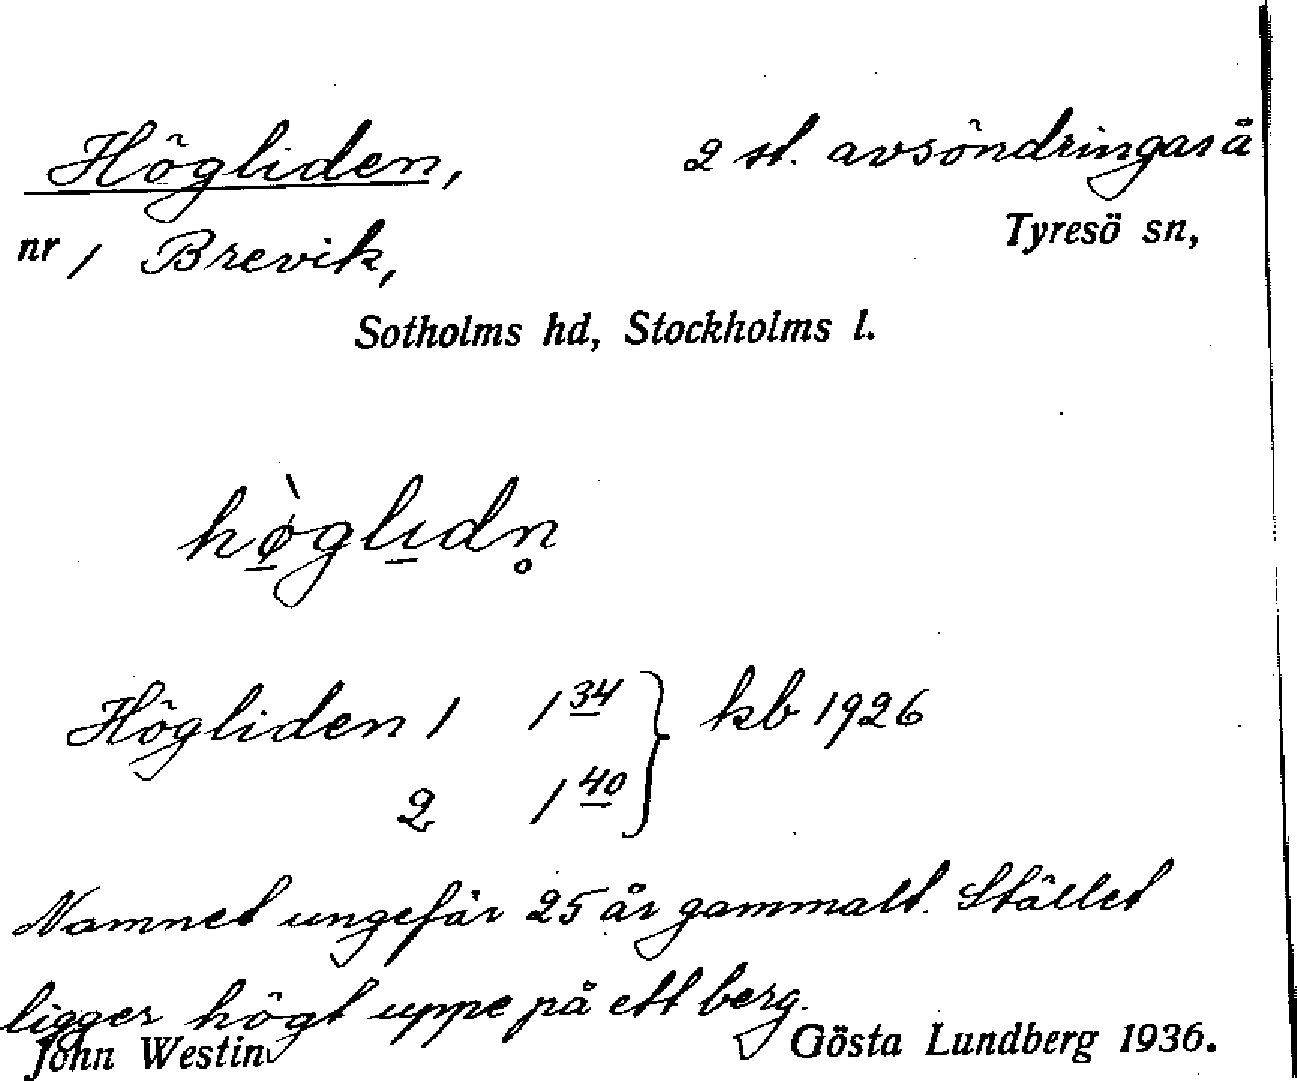 Högliden, 2 st. avsöndringar å
nr 1 Brevik, Tyresö sn,
Sotholms hd, Stockholms l.
hø̀glıdn̥
Högliden 1 1 34 } kb 1926
2 1 40
Namnet ungefär 25 år gammalt. Stället
ligger högt uppe på ett berg.
John Westin. Gösta Lundberg 1936.